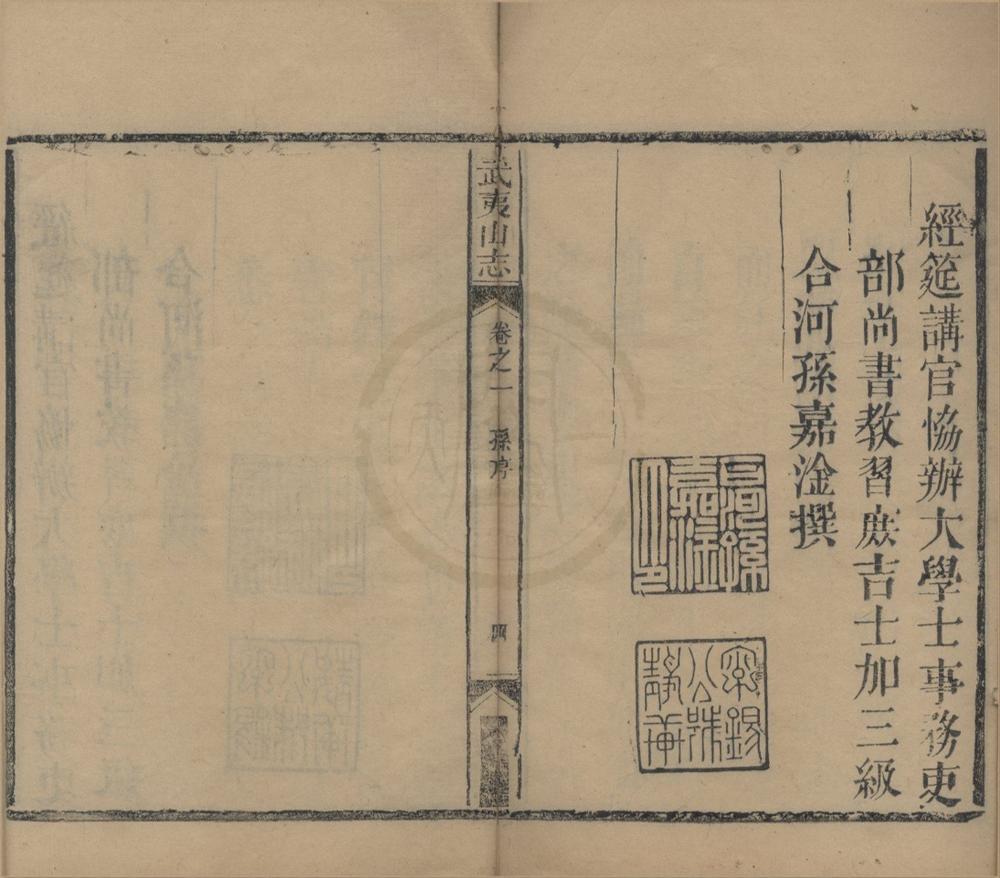 經筵講官恊辦大學士事務吏
部尚書教習庶吉士加三級
合河孫嘉淦撰
合河孫嘉淦印
武夷山志
卷之一
孫序
四